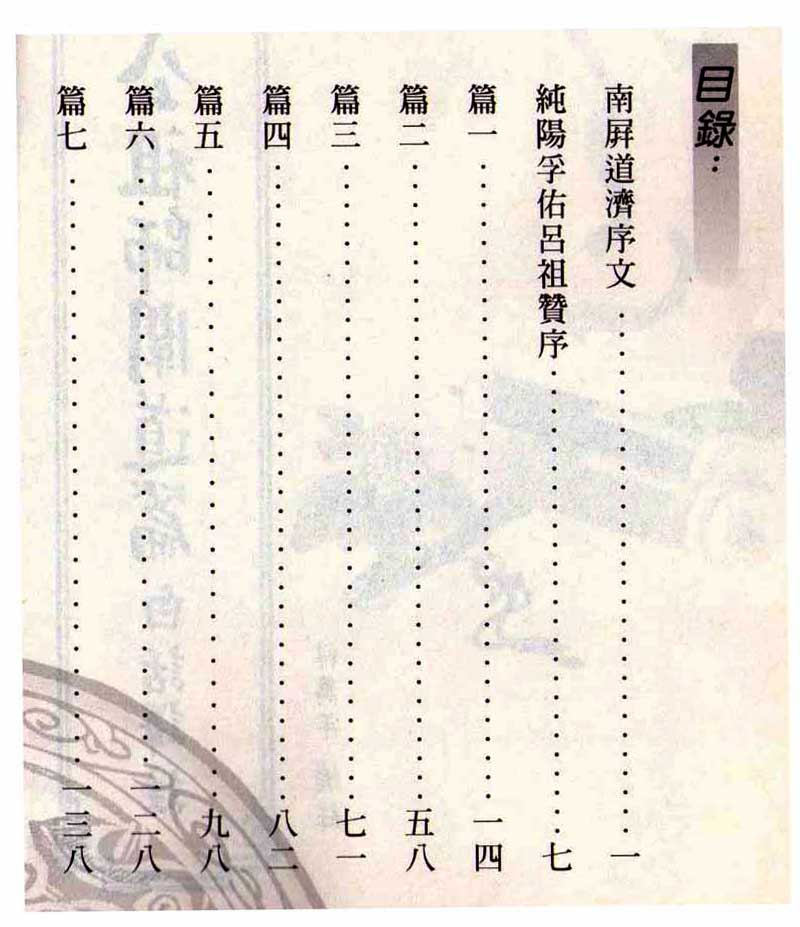 目錄：
南屏道濟序文．．．．．．．．．．．．．．．．．．．．．．．．．．．．．一
純陽孚佑呂祖贊序．．．．．．．．．．．．．．．．．．．．．．．．．．七
篇一．．．．．．．．．．．．．．．．．．．．．．．．．．．．．．．．．．．一四
篇二．．．．．．．．．．．．．．．．．．．．．．．．．．．．．．．．．．．五八
篇三．．．．．．．．．．．．．．．．．．．．．．．．．．．．．．．．．．．七一
篇四．．．．．．．．．．．．．．．．．．．．．．．．．．．．．．．．．．．八二
篇五．．．．．．．．．．．．．．．．．．．．．．．．．．．．．．．．．．．九八
篇六．．．．．．．．．．．．．．．．．．．．．．．．．．．．．．．．．一二八
篇七．．．．．．．．．．．．．．．．．．．．．．．．．．．．．．．．．一三八